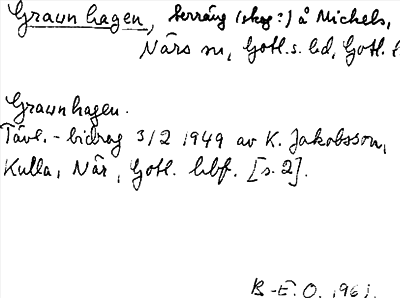 Graunhagen, terräng (skog?) å Michels,
Närs sn, Gotl. s. hd, Gotl. l
Graunhagen.
Tävl.-bidrag 3/2 1949 av K. Jakobsson,
Kulla, När, Gotl. [s.2].
B-E.O. 1961.